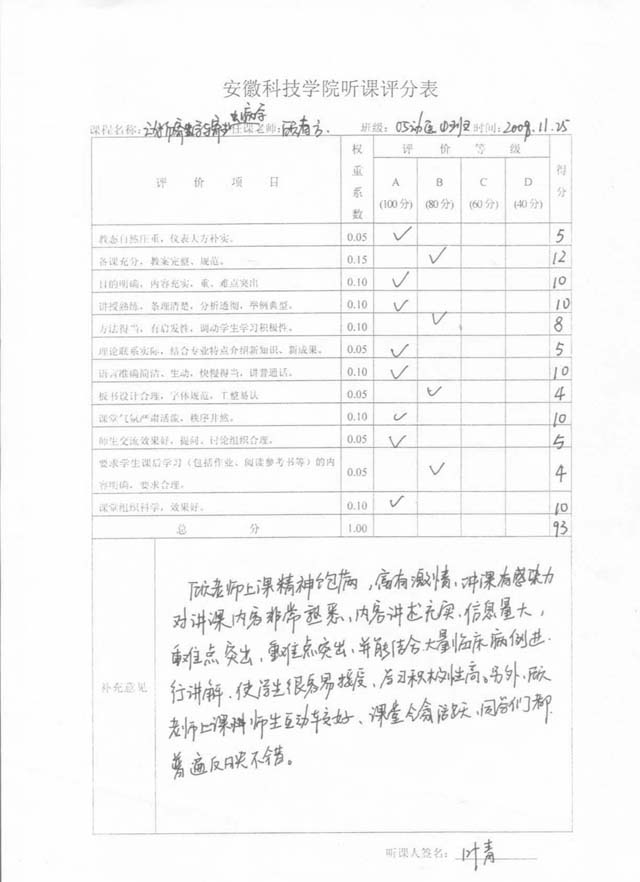 安徽科技学院听课评分表
课程名称: 任课老师: 顾有方 班级: 05动医中班 时间: 2008.11.25
评 价 项 目 权重系数 评 价 等 级 得分
A (100分) B (80分) C (60分) D (40分)
教态自然庄重，仪表大方朴实。 0.05 ✓ 5
备课充分，教案完整、规范。 0.15 ✓ 12
目的明确，内容充实，重、难点突出 0.10 ✓ 10
讲授熟练，条理清楚，分析透彻，举例典型。 0.10 ✓ 10
方法得当，有启发性，调动学生学习积极性。 0.10 ✓ 8
理论联系实际，结合专业特点介绍新知识、新成果。 0.05 ✓ 5
语言准确简洁、生动，快慢得当，讲普通话。 0.10 ✓ 10
板书设计合理，字体规范，工整易认 0.05 ✓ 4
课堂气氛严肃活泼，秩序井然。 0.10 ✓ 10
师生交流效果好，提问、讨论组织合理。 0.05 ✓ 5
要求学生课后学习（包括作业、阅读参考书等）的内
容明确，要求合理。 0.05 ✓ 4
课堂组织科学，效果好。 0.10 ✓ 10
总 分 1.00 93
补充意见
顾老师上课精神饱满，富有激情，讲课有感染力
对讲课内容非常熟悉，内容讲述充实，信息量大，
重难点突出，重难点突出，并能结合大量临床病例进
行讲解，使学生很容易接受，学习积极性高。另外，顾
老师上课时师生互动较好，课堂气氛活跃，同学们都
普遍反映不错。
听课人签名: 叶青